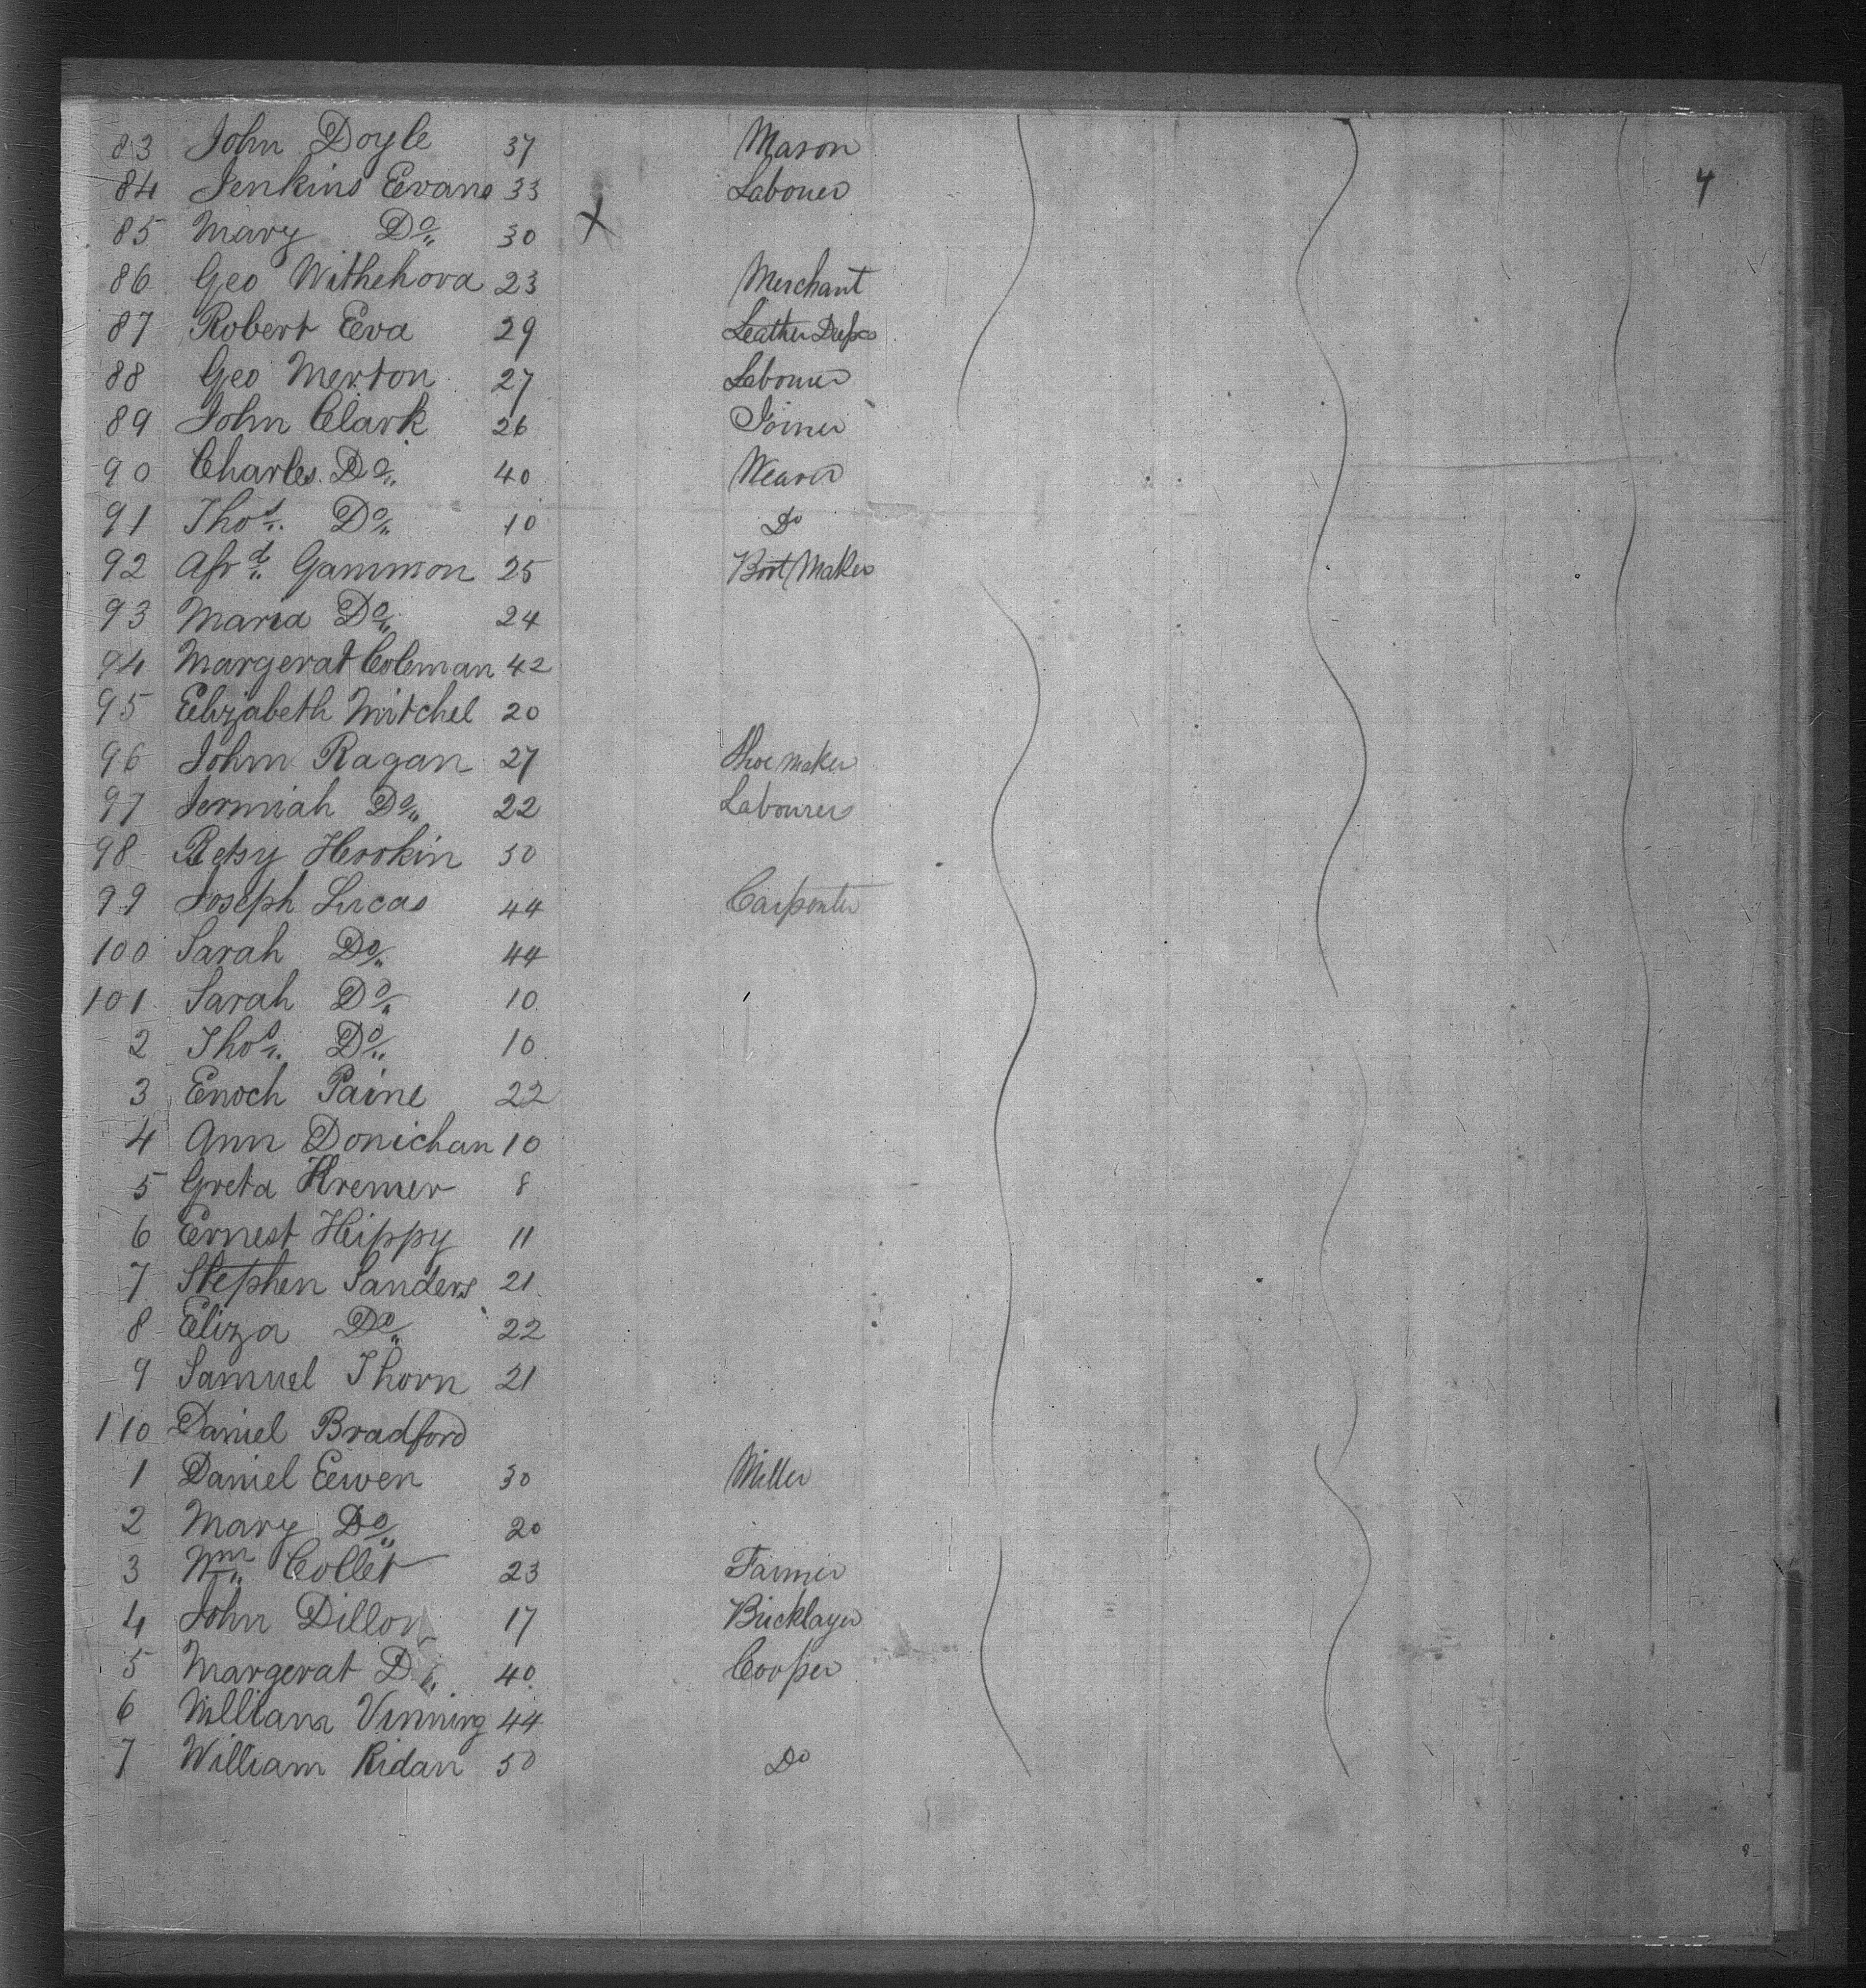 83 John Doyle 37 Mason
4
84 Jenkins Evans 33 Labourer
85 Mary Do 30 X
86 Geo Withehova 23 Merchant
87 Robert Eva 29 Leather
88 Geo Merton 27 Labourer
89 John Clark 26 Joiner
90 Charles Do 40 Weaver
91 Thos Do 10 Do
92 Afrd Gammon 25 Boot Maker
93 Maria Do 24
94 Margerat Coleman 42
95 Elizabeth Mitchel 20
96 John Ragan 27 Shoe maker
97 Jermiah Do 22 Labourer
98 Betsy Hoskin 50
99 Joseph Lucas 44 Carpenter
100 Sarah Do 44
101 Sarah Do 10
2 Thos Do 10
3 Enoch Paine 22
4 Ann Donichan 10
5 Greta Kremer 8
6 Ernest Hippy 11
7 Stephen Sanders 21
8 Eliza Do 22
9 Samuel Thorn 21
110 Daniel Bradford
1 Daniel Eewen 30 Miller
2 Mary Do 20
3 Wm Collet 23 Farmer
4 John Dillon 17 Bricklayer
5 Margerat Do 40 Cooper
6 William Vinning 44
7 William Ridan 50 Do